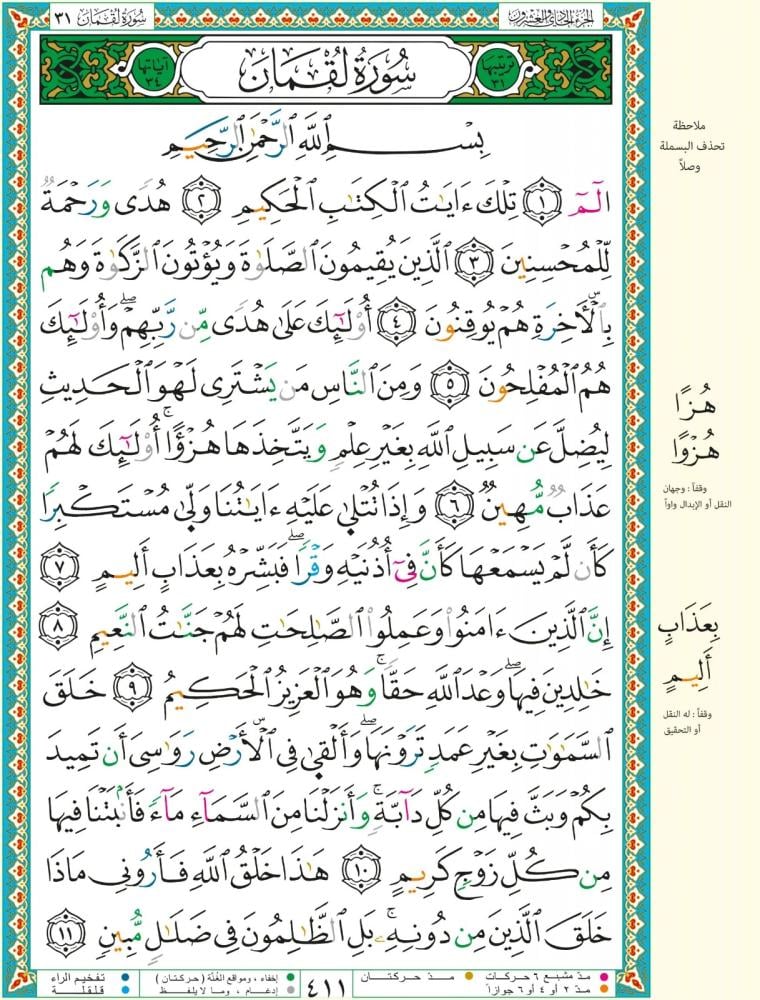 الجزء الحادي والعشرون
سُورَةُ لُقْمَانَ ٣١
ترتيبها ٣١
سُورَةُ لُقْمَانَ
آياتها ٣٤
بِسْمِ اللَّهِ الرَّحْمَٰنِ الرَّحِيمِ
الٓمٓ ١ تِلْكَ ءَايَٰتُ الْكِتَٰبِ الْحَكِيمِ ٢ هُدًى وَرَحْمَةٌ
لِّلْمُحْسِنِينَ ٣ الَّذِينَ يُقِيمُونَ الصَّلَوٰةَ وَيُؤْتُونَ الزَّكَوٰةَ وَهُم
بِالْأَخِرَةِ هُمْ يُوقِنُونَ ٤ أُوْلَٰٓئِكَ عَلَىٰ هُدًى مِّن رَّبِّهِمْ ۖ وَأُوْلَٰٓئِكَ
هُمُ الْمُفْلِحُونَ ٥ وَمِنَ النَّاسِ مَن يَشْتَرِى لَهْوَ الْحَدِيثِ
لِيُضِلَّ عَن سَبِيلِ اللَّهِ بِغَيْرِ عِلْمٍ وَيَتَّخِذَهَا هُزْؤًا ۚ أُوْلَٰٓئِكَ لَهُمْ
عَذَابٌ مُّهِينٌ ٦ وَإِذَا تُتْلَىٰ عَلَيْهِ ءَايَٰتُنَا وَلَّىٰ مُسْتَكْبِرًا
كَأَن لَّمْ يَسْمَعْهَا كَأَنَّ فِىٓ أُذُنَيْهِ وَقْرًا ۖ فَبَشِّرْهُ بِعَذَابٍ أَلِيمٍ ٧
إِنَّ الَّذِينَ ءَامَنُواْ وَعَمِلُواْ الصَّٰلِحَٰتِ لَهُمْ جَنَّٰتُ النَّعِيمِ ٨
خَٰلِدِينَ فِيهَا ۖ وَعْدَ اللَّهِ حَقًّا ۚ وَهُوَ الْعَزِيزُ الْحَكِيمُ ٩ خَلَقَ
السَّمَٰوَٰتِ بِغَيْرِ عَمَدٍ تَرَوْنَهَا ۖ وَأَلْقَىٰ فِى الْأَرْضِ رَوَٰسِىَ أَن تَمِيدَ
بِكُمْ وَبَثَّ فِيهَا مِن كُلِّ دَآبَّةٍ ۚ وَأَنزَلْنَا مِنَ السَّمَآءِ مَآءً فَأَنۢبَتْنَا فِيهَا
مِن كُلِّ زَوْجٍ كَرِيمٍ ١٠ هَٰذَا خَلْقُ اللَّهِ فَأَرُونِى مَاذَا
خَلَقَ الَّذِينَ مِن دُونِهِۦ ۚ بَلِ الظَّٰلِمُونَ فِى ضَلَٰلٍ مُّبِينٍ ١١
ملاحظة
تحذف البسملة
وصلاً
هُزًا
هُزْوًا
وقفاً : وجهان
النقل أو الإبدال واواً
بِعَذَابٍ
أَلِيمٍ
وقفاً : له النقل
أو التحقيق
مدّ مشبع ٦ حركات
مدّ حركتان
إخفاء، ومواقع الغُنَّة (حركتان)
تفخيم الراء
مدّ ٢ أو ٤ أو ٦ جوازاً
٤١١
إدغام، وما لا يلفظ
قلقلة